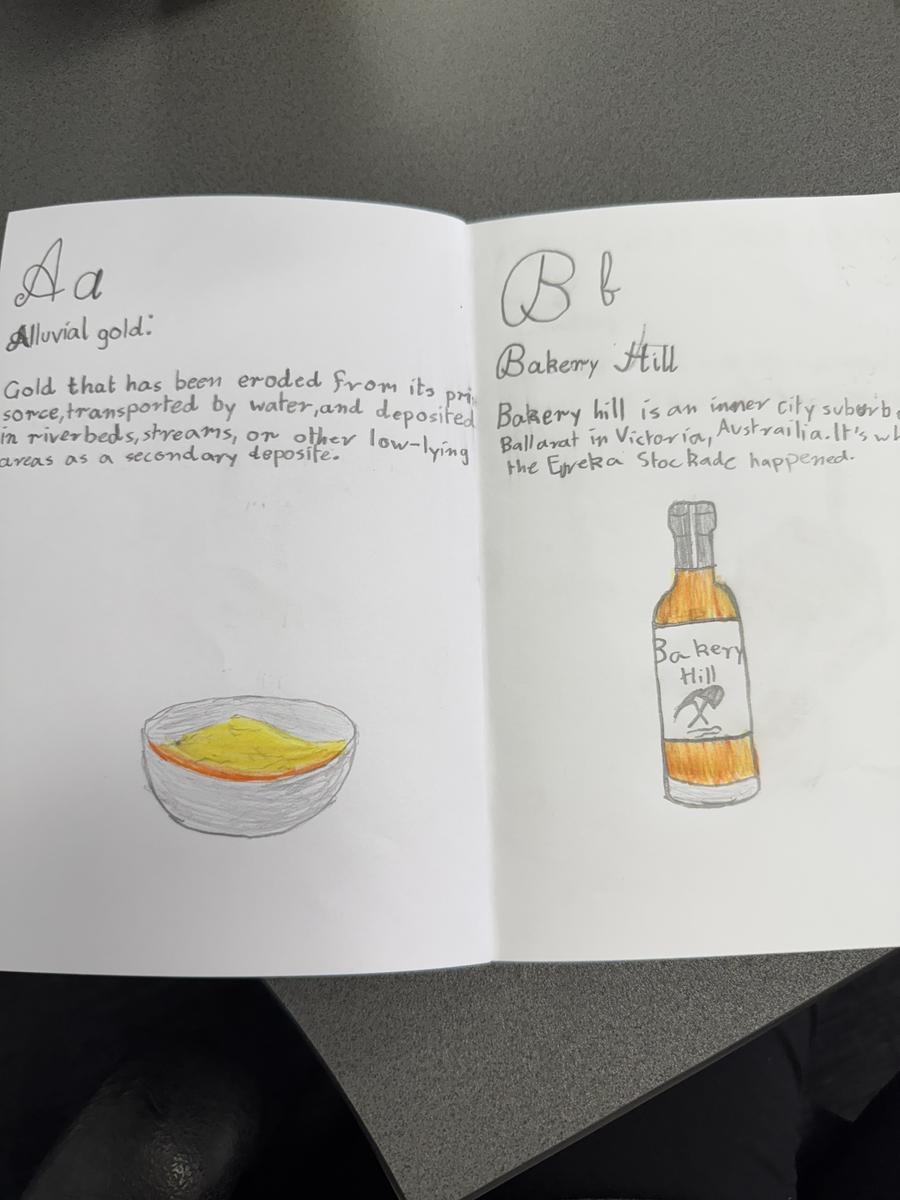 A a
Alluvial gold:
Gold that has been eroded from its
sorce, transported by water, and deposited
in riverbeds, streams, or other low-lying
areas as a secondary deposite.
B b
Bakery Hill
Bakery hill is an inner city suburb
Ballarat in Victoria, Austrailia. It's
the Eureka Stockade happened.
Bakery
Hill